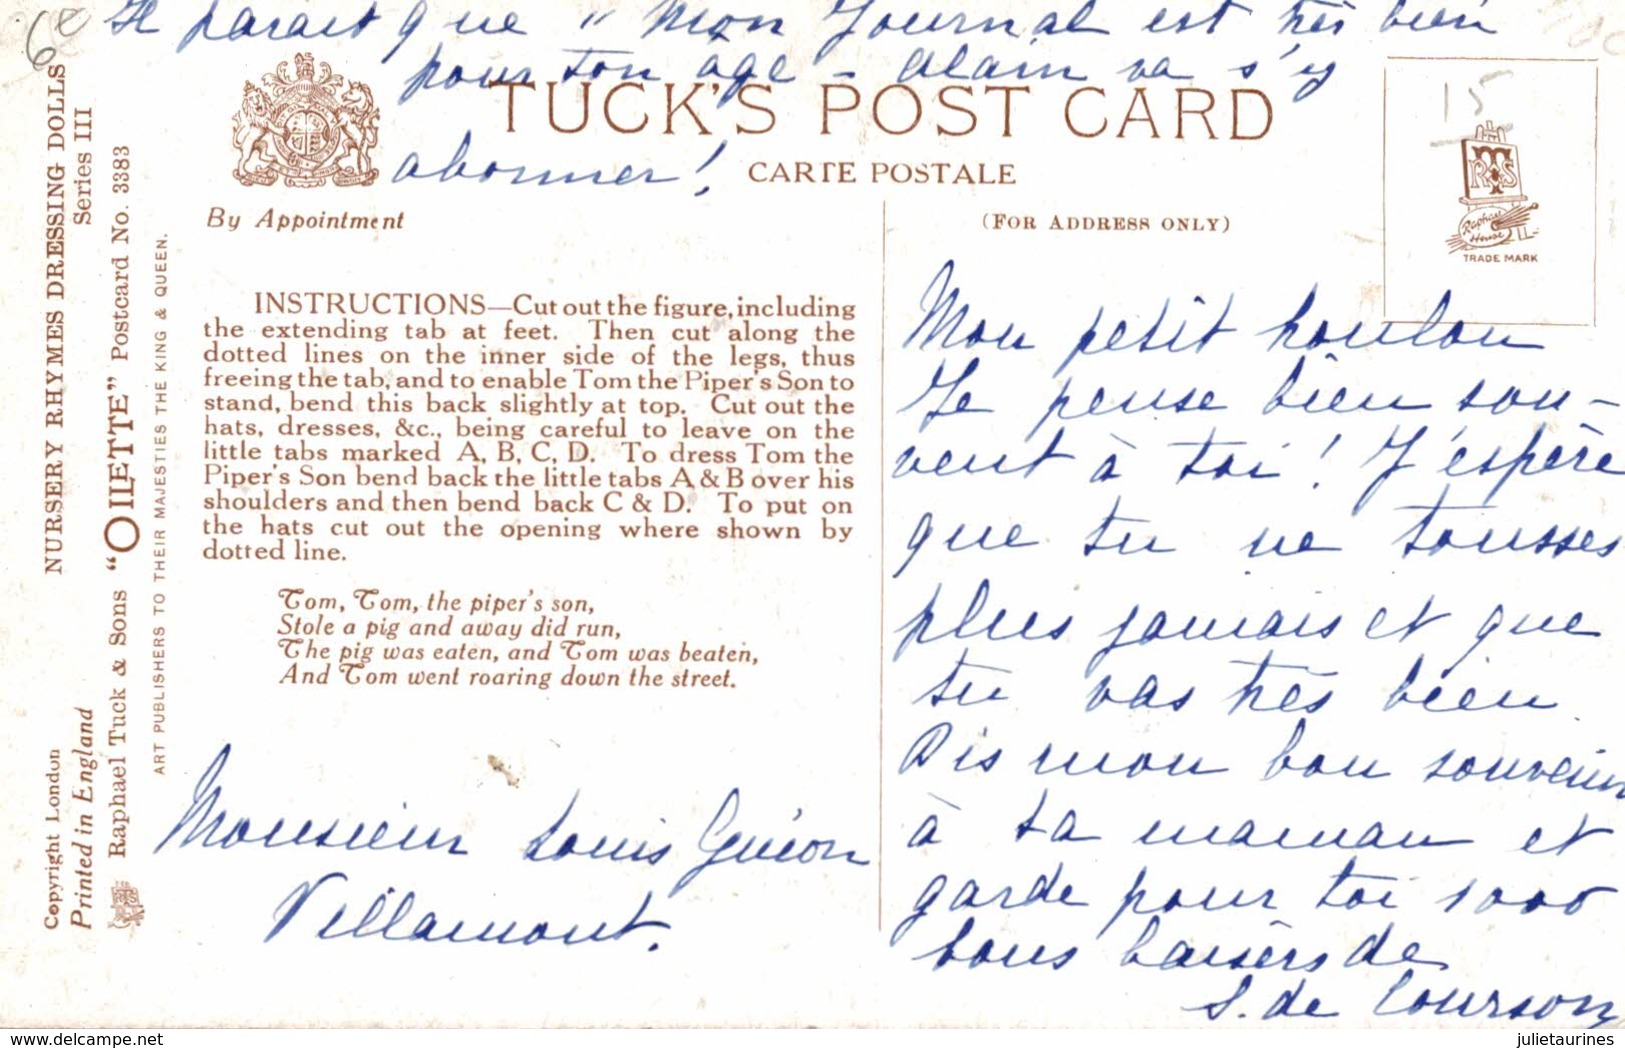 Il parait que "Mon Journal est très bien
pour ton âge - Alain va s'y
abonner!
6e
15
TUCK'S POST CARD
CARTE POSTALE
By Appointment
(FOR ADDRESS ONLY)
TRADE MARK
Raphael House
NURSERY RHYMES DRESSING DOLLS
Series III
Raphael Tuck & Sons "OILETTE" Postcard No. 3383
ART PUBLISHERS TO THEIR MAJESTIES THE KING & QUEEN.
Copyright London
Printed in England
INSTRUCTIONS—Cut out the figure, including
the extending tab at feet. Then cut along the
dotted lines on the inner side of the legs, thus
freeing the tab, and to enable Tom the Piper's Son to
stand, bend this back slightly at top. Cut out the
hats, dresses, &c., being careful to leave on the
little tabs marked A, B, C, D. To dress Tom the
Piper's Son bend back the little tabs A & B over his
shoulders and then bend back C & D. To put on
the hats cut out the opening where shown by
dotted line.
Tom, Tom, the piper's son,
Stole a pig and away did run,
The pig was eaten, and Tom was beaten,
And Tom went roaring down the street.
Monsieur Louis Guéon
Villamont.
Mon petit loulou
Je pense bien sou-
vent à toi! J'espère
que tu ne tousses
plus jamais et que
tu vas très bien
Dis mon bon souvenir
à ta maman et
garde pour toi 1000
bons baisers de
S. de Courson
julietaurines
www.delcampe.net